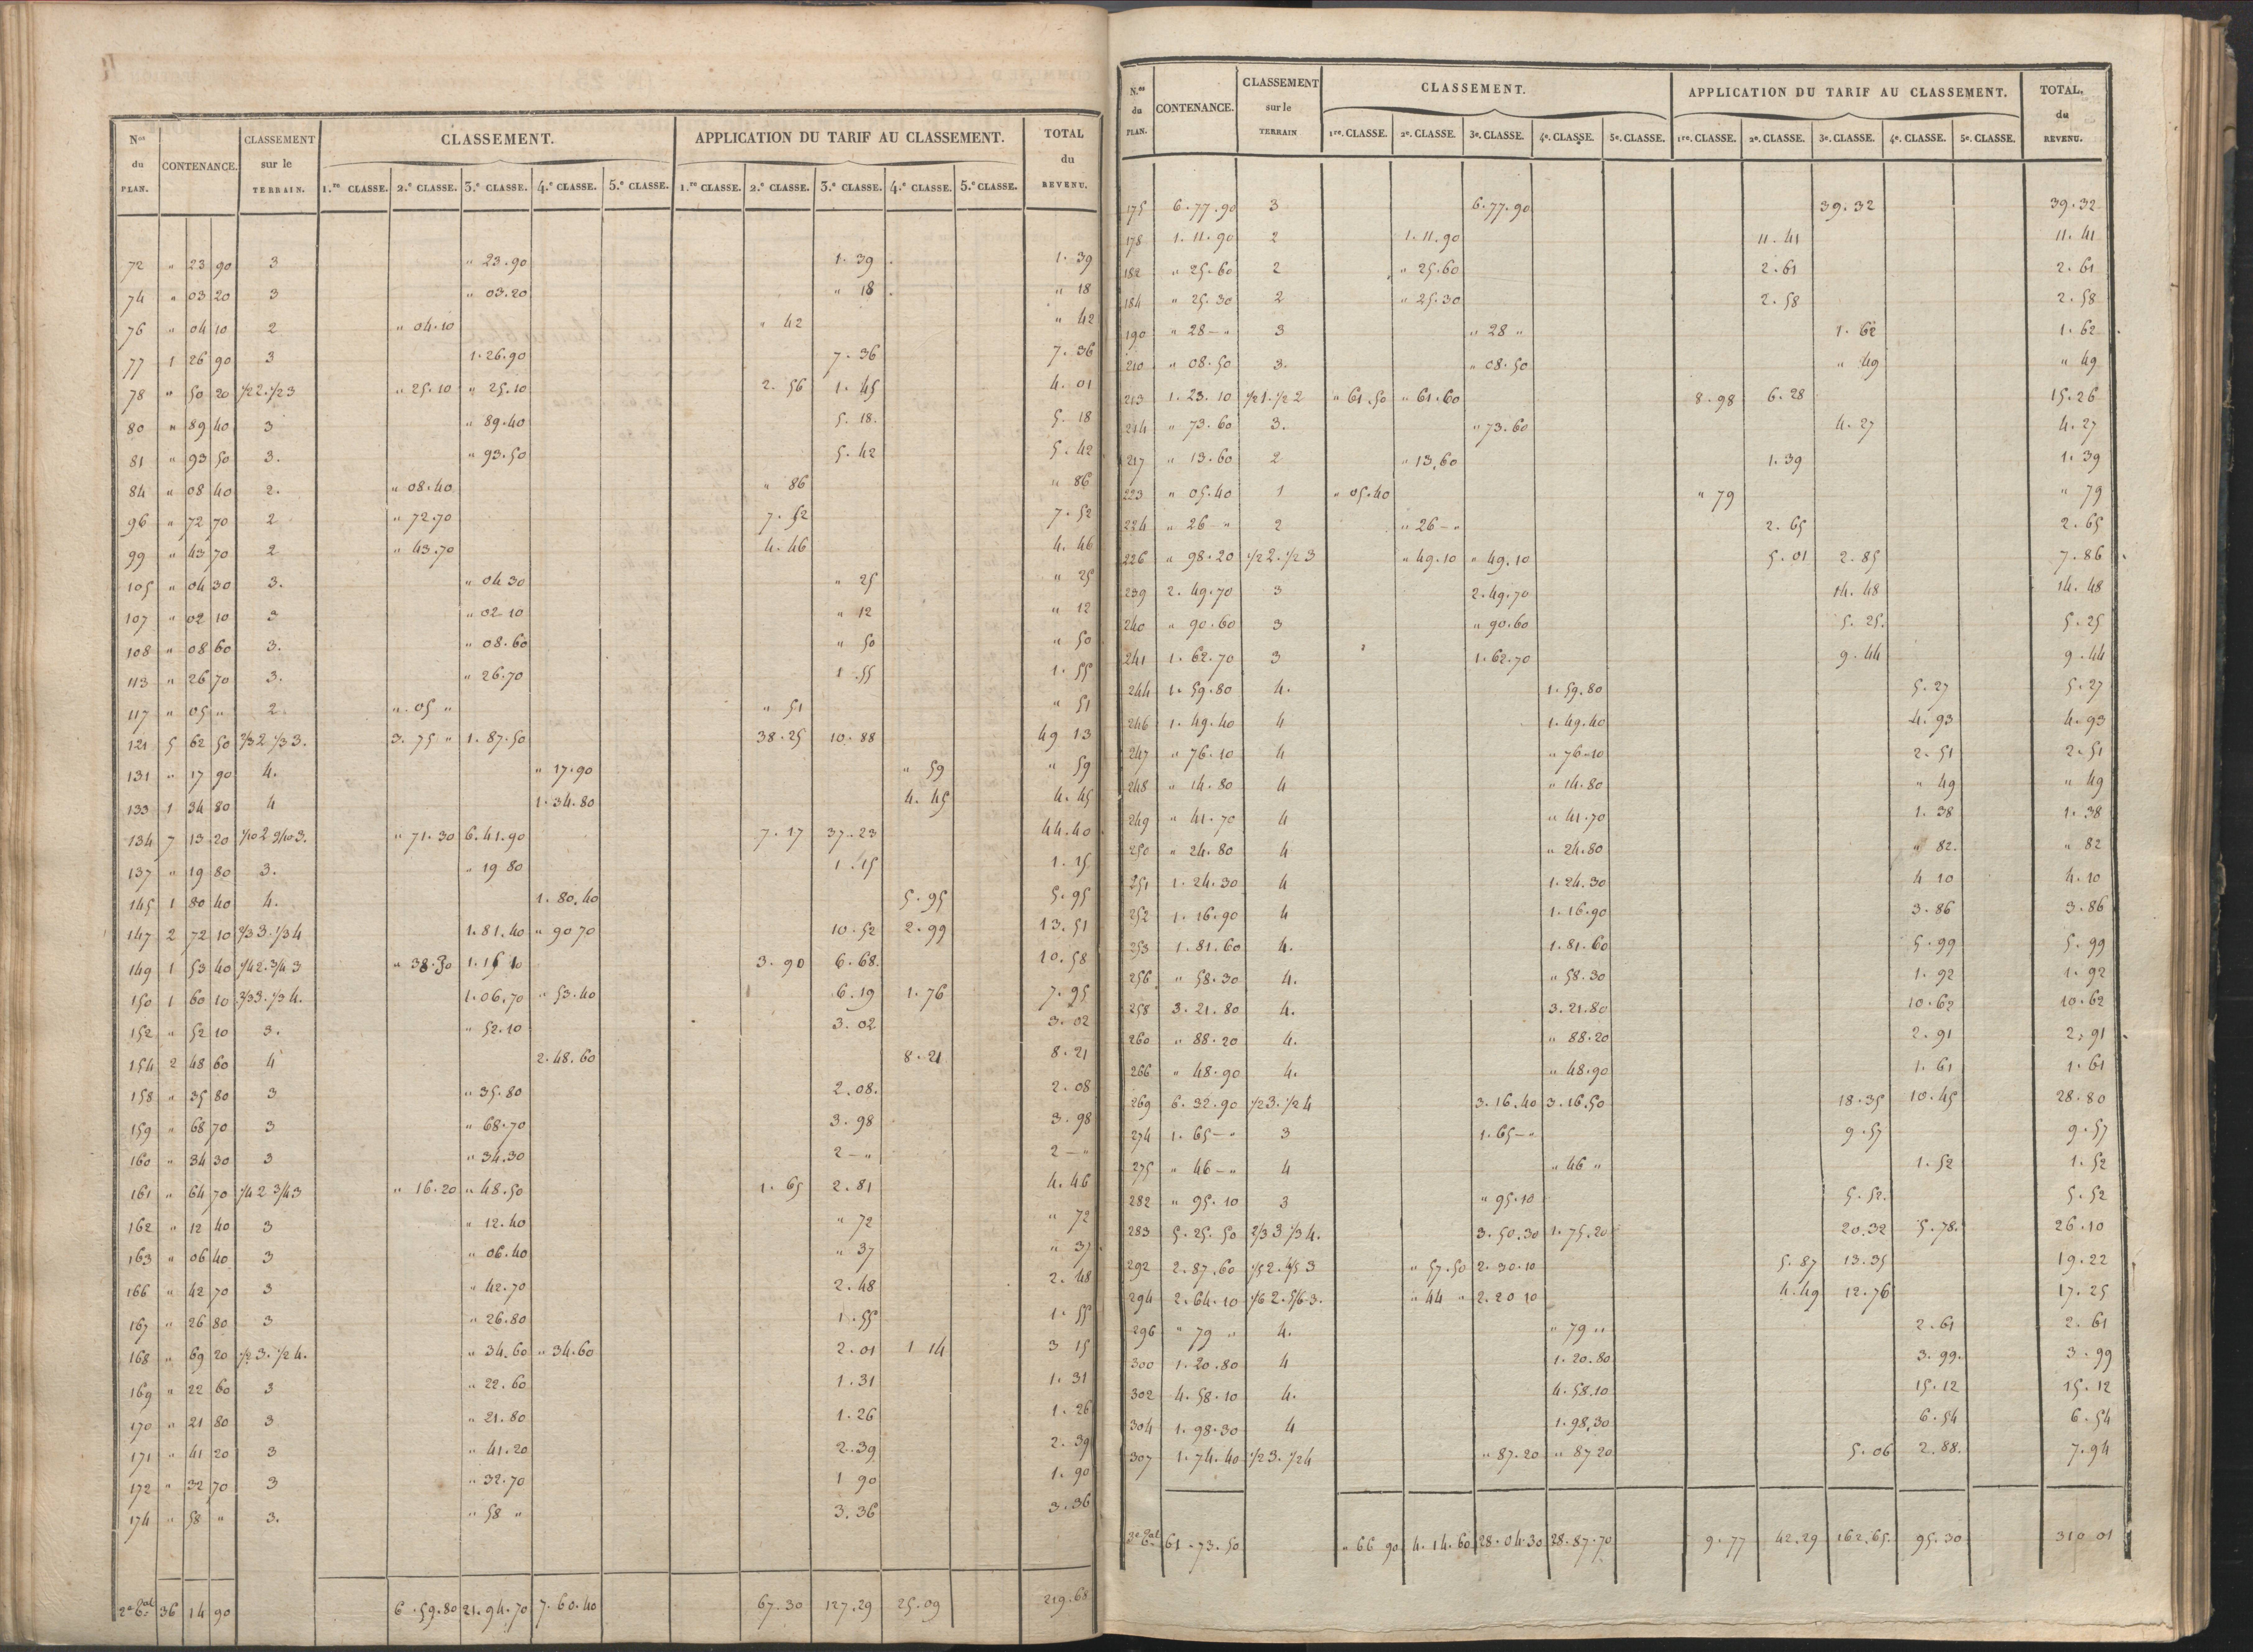 Nos du PLAN. CONTENANCE. CLASSEMENT sur le TERRAIN. CLASSEMENT. APPLICATION DU TARIF AU CLASSEMENT. TOTAL du REVENU.
1.re CLASSE. 2.e CLASSE. 3.e CLASSE. 4.e CLASSE. 5.e CLASSE. 1.re CLASSE. 2.e CLASSE. 3.e CLASSE. 4.e CLASSE. 5.e CLASSE.
72 " 23 90 3 " 23.90 1. 39 1. 39
74 " 03 20 3 " 03.20 " 18 " 18
76 " 04 10 2 " 04.10 " 42 " 42
77 1 26 90 3 1.26.90 7. 36 7. 36
78 " 50 20 1/2 2. 1/2 3 " 25.10 " 25.10 2. 56 1. 45 4. 01
80 " 89 40 3 " 89.40 5. 18. 5. 18
81 " 93 50 3. " 93.50 5. 42 5. 42
84 " 08 40 2. " 08.40 " 86 " 86
96 " 72 70 2 " 72.70 7. 52 7. 52
99 " 43 70 2 " 43.70 4. 46 4. 46
105 " 04 30 3. " 04 30 " 25 " 25
107 " 02 10 3 " 02 10 " 12 " 12
108 " 08 60 3. " 08.60 " 50 " 50
113 " 26 70 3. " 26.70 1. 55 1. 55
117 " 05 " 2. " 05 " " 51 " 51
121 5 62 50 2/3 2 1/3 3. 3. 75 " 1. 87.50 38.25 10. 88 49 13
131 " 17 90 4. " 17.90 " 59 " 59
133 1 34 80 4 1.34.80 4. 45 4. 45
134 7 13 20 1/10 2 9/10 3. " 71.30 6.41.90 7. 17 37. 23 44.40
137 " 19 80 3. " 19 80 1. 15 1. 15
145 1 80 40 4. 1. 80.40 5. 95 5. 95
147 2 72 10 2/3 3. 1/3 4 1.81.40 " 90 70 10.52 2. 99 13. 51
149 1 53 40 1/4 2. 3/4 3 " 38.30 1.15 10 3. 90 6. 68. 10. 58
150 1 60 10 2/3 3. 1/3 4. 1.06.70 " 53.40 6.19 1. 76 7. 95
152 " 52 10 3. " 52.10 3. 02 3. 02
154 2 48 60 4 2.48.60 8. 21 8. 21
158 " 35 80 3 " 35.80 2. 08. 2. 08
159 " 68 70 3 " 68.70 3. 98 3. 98
160 " 34 30 3 " 34.30 2 — " 2 — "
161 " 64 70 1/4 2 3/4 3 " 16.20 " 48.50 1. 65 2. 81 4. 46
162 " 12 40 3 " 12.40 " 72 " 72
163 " 06 40 3 " 06.40 " 37 " 37
166 " 42 70 3 " 42.70 2. 48 2. 48
167 " 26 80 3 " 26.80 1. 55 1. 55
168 " 69 20 1/2 3. 1/2 4. " 34.60 " 34.60 2. 01 1 14 3 15
169 " 22 60 3 " 22.60 1. 31 1. 31
170 " 21 80 3 " 21.80 1. 26 1. 26
171 " 41 20 3 " 41.20 2. 39 2. 39
172 " 32 70 3 " 32.70 1 90 1. 90
174 " 58 " 3. " 58 " 3. 36 3. 36
36 14 90 6.59.80 21.94.70 7.60.40 67.30 127.29 25.09 219.68
N.os du PLAN. CONTENANCE. CLASSEMENT sur le TERRAIN CLASSEMENT. APPLICATION DU TARIF AU CLASSEMENT. TOTAL. du REVENU.
1re. CLASSE. 2e. CLASSE. 3e. CLASSE. 4e. CLASSE. 5e. CLASSE. 1re. CLASSE. 2e. CLASSE. 3e. CLASSE. 4e. CLASSE. 5e. CLASSE.
175 6.77.90 3 6.77.90 39.32 39.32
178 1.11.90 2 1.11.90 11.41 11.41
182 " 25.60 2 " 25.60 2.61 2.61
184 " 25.30 2 " 25.30 2.58 2.58
190 " 28 — " 3 " 28 " 1. 62 1. 62
210 " 08.50 3. " 08.50 " 49 " 49
213 1.23.10 1/2 1. 1/2 2 " 61.50 " 61.60 8.98 6.28 15.26
214 " 73.60 3. " 73.60 4.27 4.27
217 " 13.60 2 " 13.60 1.39 1.39
223 " 05.40 1 " 05.40 " 79 " 79
224 " 26 — " 2 " 26 — " 2.65 2.65
226 " 98.20 1/2 2. 1/2 3 " 49.10 " 49.10 5.01 2.85 7.86
239 2.49.70 3 2.49.70 14.48 14.48
240 " 90.60 3 " 90.60 5.25. 5.25
241 1.62.70 3 1.62.70 9.44 9.44
244 1.59.80 4. 1.59.80 5.27 5.27
246 1.49.40 4 1.49.40 4.93 4.93
247 " 76.10 4 " 76.10 2.51 2.51
248 " 14.80 4 " 14.80 " 49 " 49
249 " 41.70 4 " 41.70 1.38 1.38
250 " 24.80 4 " 24.80 " 82. " 82
251 1.24.30 4 1.24.30 4 10 4.10
252 1.16.90 4 1.16.90 3.86 3.86
253 1.81.60 4. 1.81.60 5.99 5.99
256 " 58.30 4. " 58.30 1.92 1.92
258 3.21.80 4. 3.21.80 10.62 10.62
260 " 88.20 4. " 88.20 2.91 2.91
266 " 48.90 4. " 48.90 1.61 1.61
269 6.32.90 1/2 3. 1/2 4 3.16.40 3.16.50 18.35 10.45 28.80
274 1.65 — " 3 1.65 — " 9.57 9.57
275 " 46 — " 4 " 46 " 1.52 1.52
282 " 95.10 3 " 95.10 5.52. 5.52
283 5.25.50 2/3 3 1/3 4. 3.50.30 1.75.20 20.32 5.78. 26.10
292 2.87.60 1/5 2. 4/5 3 " 57.50 2.30.10 5.87 13.35 19.22
294 2.64.10 1/6 2. 5/6 3. " 44 " 2.20 10 4.49 12.76 17.25
296 " 79 " 4. " 79 " 2.61 2.61
300 1.20.80 4 1.20.80 3.99. 3.99
302 4.58.10 4. 4.58.10 15.12 15.12
304 1.98.30 4 1.98.30 6.54 6.54
307 1.74.40 1/2 3. 1/2 4 " 87.20 " 87 20 5.06 2.88. 7.94
61.73.50 " 66 90 4.14.60 28.04.30 28.87.70 9.77 42.29 162.65. 95.30 310 01